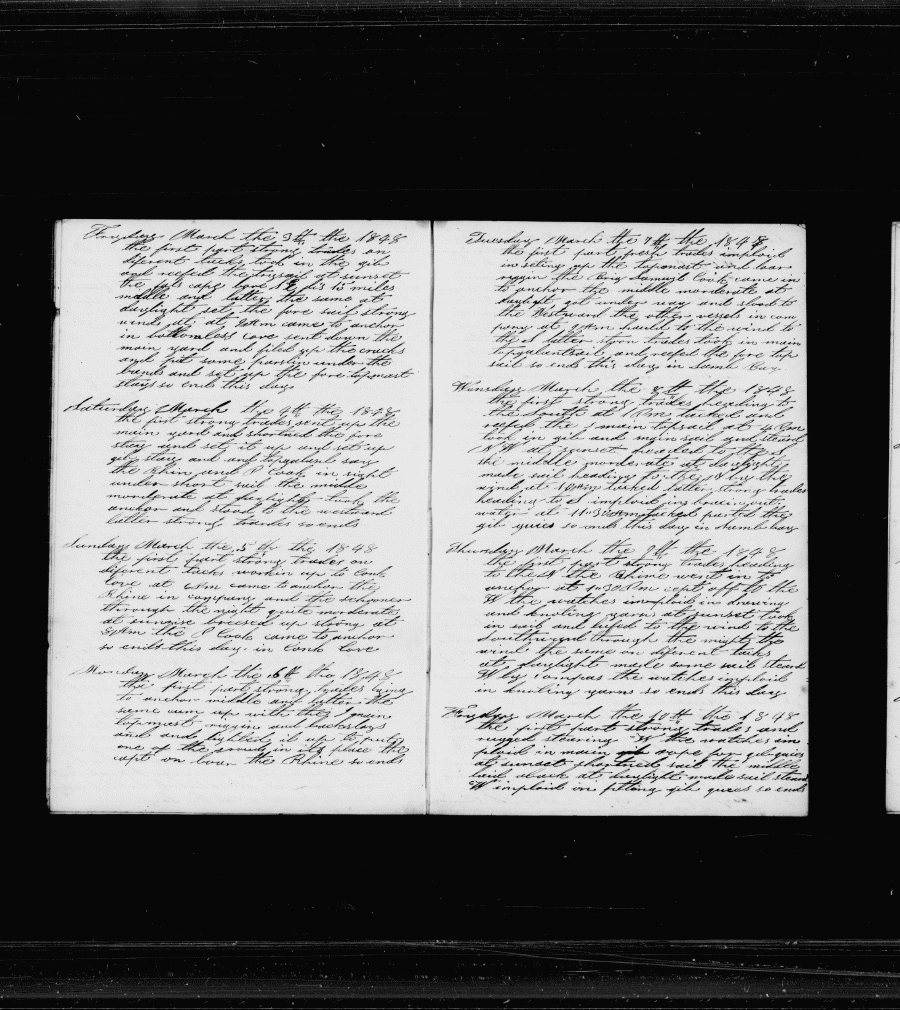 Fryday March the 3th the 1848
the first part strong trades on
diferent tacks took in the gib
and reefed the trysail at sunset
the gals cape bore N E dis 15 miles
middle and latter the same at
daylight set the fore sail strong
winds at 9 Am came to anchor
in bottomless cove sent down the
main yard and filed up the cracks
and put some parslin under the
bands and set up the fore topmast
stays so ends this day
Saturday March the 4th the 1848
the first strong trades sent up the
main yard and shortned the fore
stay and set it up and set up
gib stay and topgalant stay
the Rhin and P Cook in sight
under short sail the middle
morderate at daylight took the
anchor and stood to the westward
latter strong trades so ends
Sunday March the 5th the 1848
the first part strong trades on
diferent tacks workin up to Cook
Cove at Am came to anchor the
Rhine in company and the schooner
through the night quite morderate
at sunrise breesed up strong at
Am the P Cook came to anchor
so ends this day in Cook Cove
Monday March the 6th the 1848
the first part strong trades lying
to anchor middle and latter the
same cum up with the main
topmost rigin and backstays
and and lighted it up to put
one of the in its place the
capt on boar the Rhine so ends
Tuesday March the 7th the 1848
the first part fresh trades imploid
in seting up the topmast and loar
rigin the Brig Cook came in
to anchor the middle morderate at
daylight got under way and stood to
the Westward the other vessels in com
pony at Am hauld to the wind to
the S latter strong trades took in main
topgalantsail and reefed the fore top
sail so ends this day in Samh Bay
Winsday March the 8th the 1848
the first strong trades heading to
the South at 1 Pm tacked and
reefed the main topsail at 4 Pm
took in gib and main sail and steard
N W at sunset headed to the S
the middle morderate at daylight
made sail heading to the S by the
wind at 10 Am tacked latter strong trades
heading to E imploid in brakinout
water at 11-30 Am tacked parted the
gib guies so ends this day in bay
Thursday March the 9th the 1848
the first part strong trades heading
to the S the Rhine went in to
anchor at 1-30 Pm cept off to the
W the watches imploid in drawing
and knoting yarn at sunset took
in sail and lufed to the wind to the
Southward through the night the
wind the same on diferent tacks
at daylight made some sail steard
W by compas the watches imploid
in knoting yarns so ends this day
Fryday March the 10th the 1848
the first part strong trades and
ruged stearing W the watches im
ploid in main rope for gib guies
at sunset shortned sail the middle
laid aback at daylight made sail steard
W imploid in fitting gib guies so ends